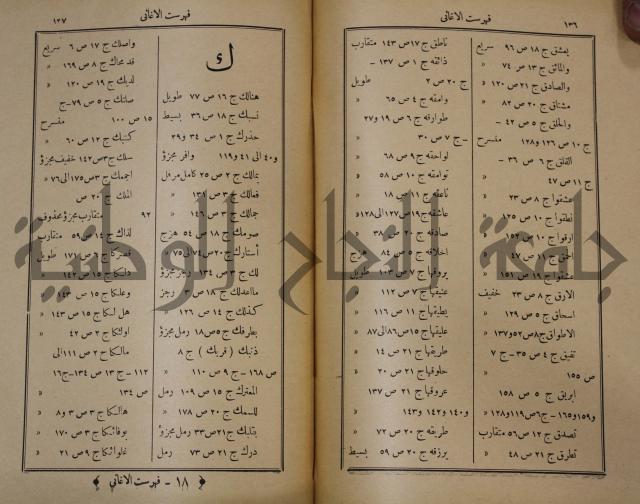 ١٣٦
فهرست الاغانى
يعشق ج ١٨ ص ٩٦ سريع
والمائق ج ١٣ ص ٧٤ »
والصادق ج ٢١ ص ١٢٠ »
مشتاق ج ٢٠ ص ٨٢ »
والخلق ج ٥ ص ٤٢ -
ج ١٠ ص ١٢٦ و ١٢٨ منسرح
القلق ج ٦ ص ٣٦ -
ج ١١ ص ٤٧ »
عشقوا ج ٨ ص ٢٣ »
نطقوا ج ١٠ ص ١٢٥ »
ارفوا ج ١٠ ص ١٥٢ »
احق ج ١١ ص ٤٧ »
عشقوا ج ١٩ ص ١٥١ »
الارق ج ٨ ص ٢٣ خفيف
اسحاق ج ٥ ص ١٢٩ »
الاطواق ج٨ص٥٢و١٣٧ »
تفيق ج ٤ ص ٣٥ - ج ٧
ص ١٥٥ »
ابريق ج ٥ ص ١٥٨
و١٥٩و١٦٥-ج٦ص١١٩و١٢٨ »
تصدق ج ١٢ ص ٥٦ متقارب
تطرق ج ٢١ ص ٤٨ »
ناطق ج ١٧ ص ١٤٣ متقارب
ذائقه ج ١ ص ١٣٧ -
ج ٢٠ ص ٢ طويل
وامقه ج ٤ ص ٦٥ »
طوارقه ج ٦ ص ١٩ و ٢٧
- ج ٧ ص ٣٠ »
لواحقه ج ٩ ص ٦٨ »
توامقه ج ١٠ ص ٥٨ »
ناعقه ج ١١ ص ١٨ »
عاشقه ج١٩ص١٢٧الى١٢٨ »
صادقه ج ٢٠ ص ٣٨ »
اخلاقه ج ٥ ص ٨٤ هزج
بروقها ج ٧ ص ١٠٣ طويل
عنيقها ج ٧ ص ١١٢ »
يطيقها ج ١١ ص ١١٦ »
عليقها ج ١٥ ص٨٦الى٨٧ »
طريقها ج ٢١ ص ١٤ »
حلوقها ج ٢١ ص ٢٠ »
عروقها ج ٢١ ص ١٣٧
و ١٤٠ و ١٤٢ و ١٤٣ »
طريقه ج ٢٠ ص ٧٢ »
يرزقه ج ٢٠ ص ٥٩ بسيط
فهرست الاغانى
١٣٧
ك
هنالك ج ١٦ ص ٧٧ طويل
نسبك ج ١٨ ص ٣٦ بسيط
حذرك ج ١ ص ٣٤ و ٣٩
و ٤٠ الى ٤١ و ١١٩ وافر مجزؤ
بمالك ج ٢ ص ٢٥ كامل مرفل
فعالك ج ٣ ص ١٣٩ »
جمالك ج ٣ ص ١٤٦ »
صومك ج ١٨ ص ٥٤ هزج
أستارك ج٢٠ص٧٤الى٧٥ »
لك ج ٣ ص ١٣٤ رجز مجزؤ
مااعدلك ج ١٨ ص ٣ رجز
كذلك ج ١٤ ص ١٢٦ »
بطرفك ج٥ص١٨ رمل مجزؤ
ذنبك ( قربك ) ج ٨
ص ١٦٨ - ج ٩ ص ١١٠ »
المعترك ج ١٥ ص ١٠٩ رمل
للسمك ج ٢٠ ص ١٧٨ »
بقلبك ج٢١ص٣٣ رمل مجزؤ
درك ج ٢١ ص ٧٣ رمل
واصلك ج ١٧ ص ٦ سريع
قد محاك ج ٨ ص ١٦٩ »
لديك ج ١٩ ص ١٢٠ »
صلتك ج ٥ ص ٧٩ - ج
١٥ ص ١٠٠ منسرح
كتبك ج ١٢ ص ٦٠ »
سنك ج٣ص١٤٢ خفيف مجزؤ
اجمعك ج ٣ ص١٧٥الى٧٦ »
الملك ج ٢٠ ص
٩٢ متقارب مجزؤ محذوف
لذاك ج ١٤ ص ٥٩ متقارب
ج ٦ ص ١٧١ طويل
ج ١٥ ص ١٤٢ »
وعلكا ج ١٥ ص ١٤٣ »
هل لكا ج ١٥ ص ١٤٣ »
اولئكا ج ٢ ص ٤٢ »
مالكا ج ٢ ص ١١١ الى
١١٢ - ج ١٣ ص ١٣٤ - ج ١٦
ص ١٣٤ »
هالكا ج ٣ ص ٣ و ٨ »
بوفائكما ج ٣ ص ١٧٠ »
غلوائكا ج ٩ ص ٢١ »
﴿ ١٨ - فهرست الاغانى ﴾
جامعة النجاح الوطنية